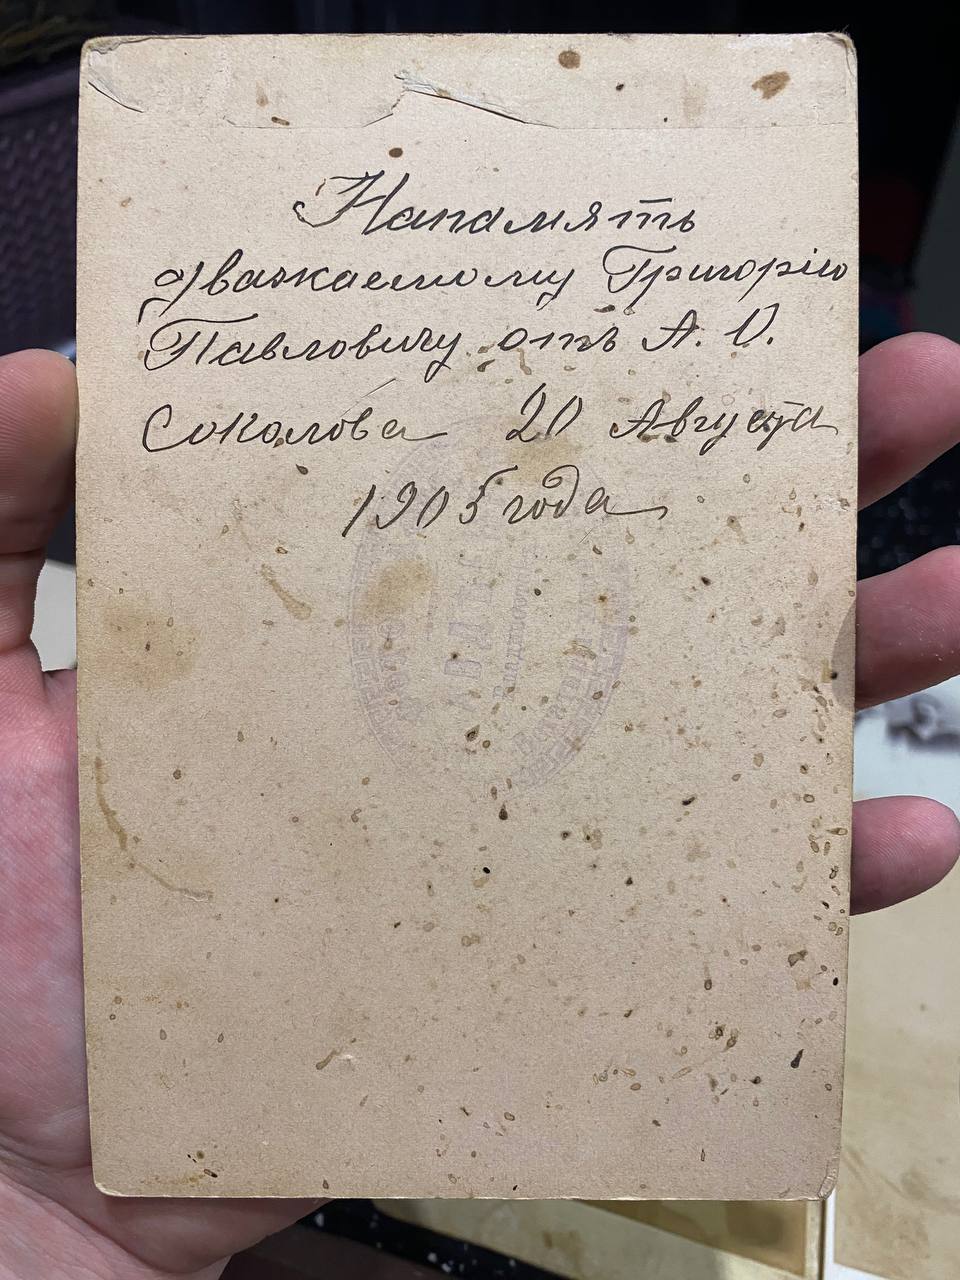 Напамять
уважаемому Григорію
Павловичу отъ А. О.
Соколова 20 Августа
1905 года